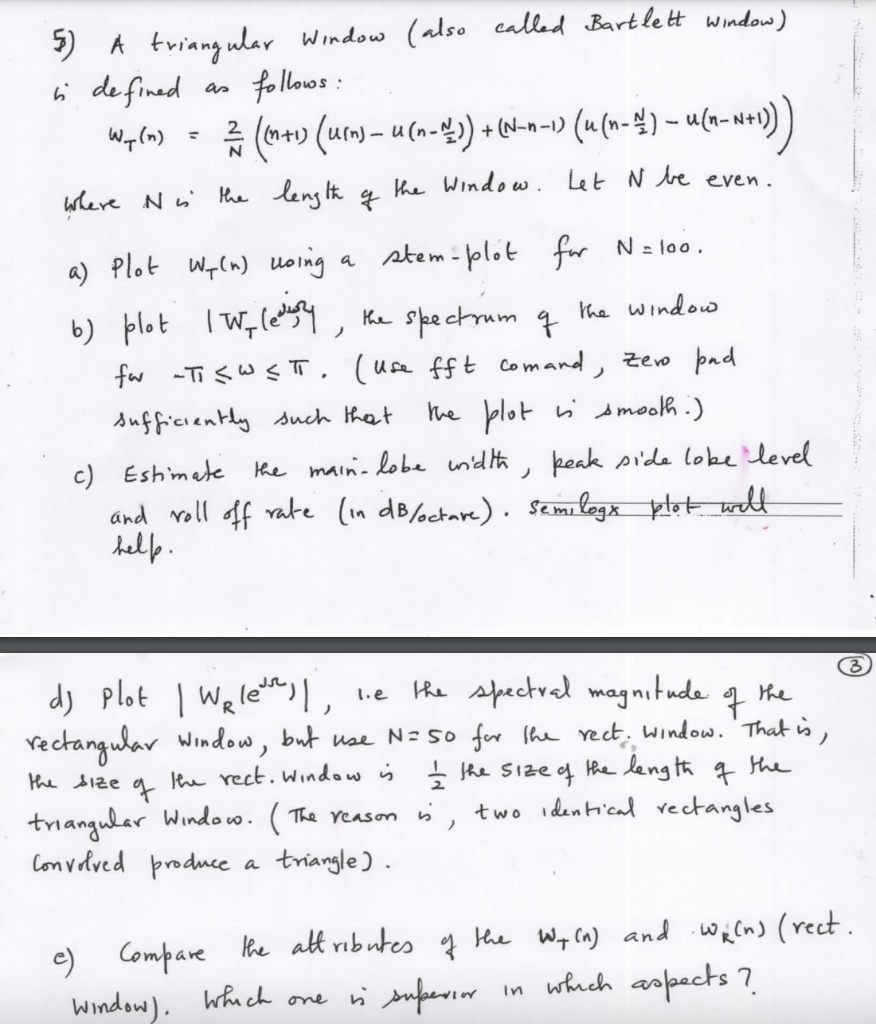 5) A triangular Window (also called Bartlett Window)
is defined as follows:
W_T(n) = 2/N ((n+1) (u(n) – u(n-N/2)) + (N-n-1) (u(n-N/2) – u(n-N+1)))
where N is the length of the Window. Let N be even.
a) Plot W_T(n) using a stem-plot for N = 100.
b) plot | W_T(e^{jΩ})|, the spectrum of the window
for -π ≤ ω ≤ π. (use fft comand, zero pad
sufficiently such that the plot is smooth.)
c) Estimate the main-lobe width, peak side lobe level
and roll off rate (in dB/octave). Semilogx plot will
help.
3
d) Plot | W_R(e^{jΩ})|, i.e the spectral magnitude of the
rectangular Window, but use N=50 for the rect. Window. That is,
the size of the rect. Window is 1/2 the size of the length of the
triangular Window. (The reason is, two identical rectangles
Convolved produce a triangle).
e) Compare the attributes of the W_T(n) and W_R(n) (rect.
Window). Which one is superior in which aspects?